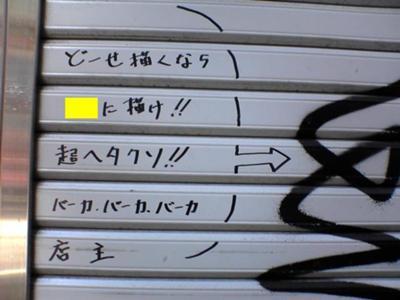 どーせ描くなら
に描け!!
超ヘタクソ!!
バーカ.バーカ.バーカ
店主